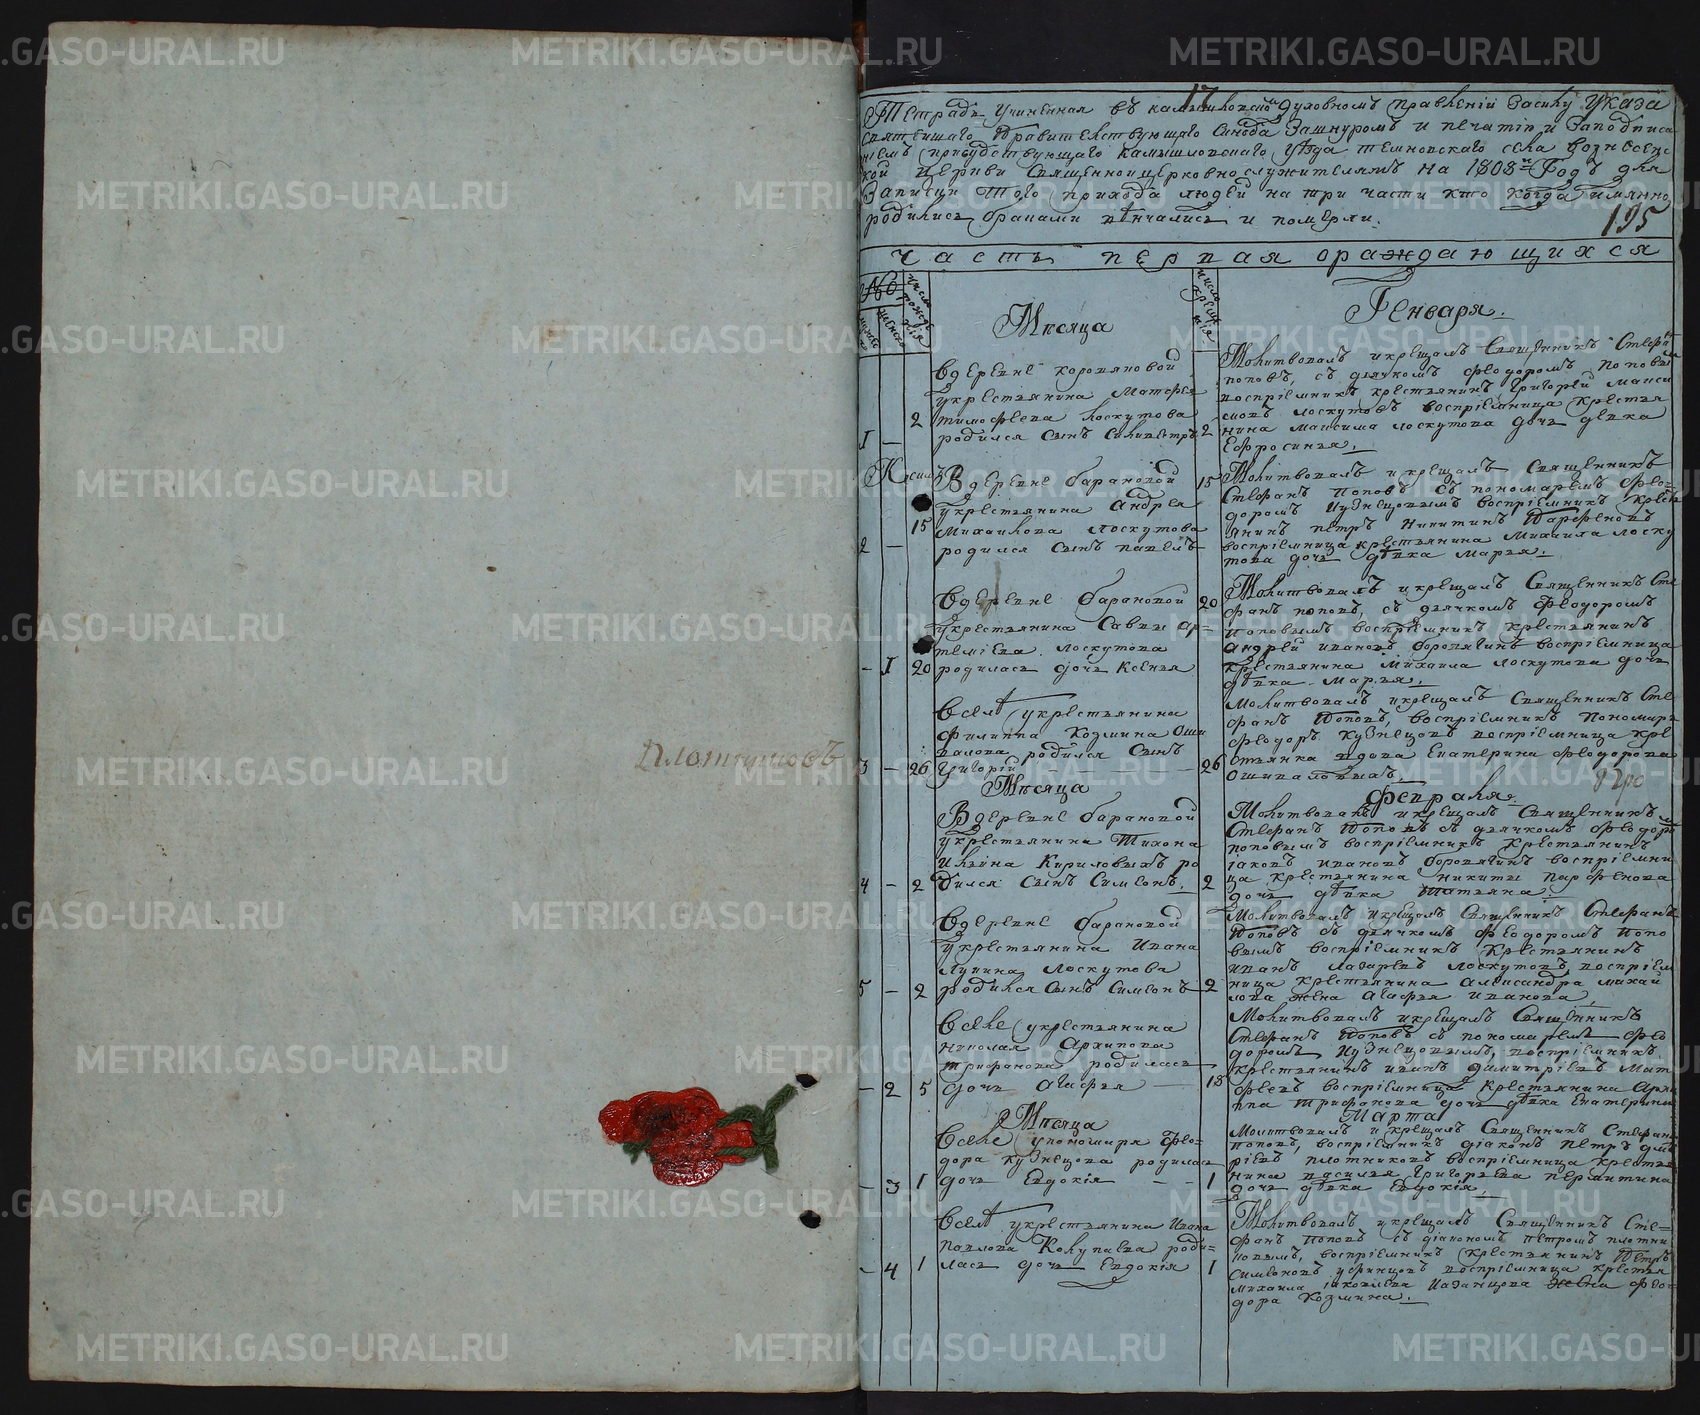 METRIKI.GASO-URAL.RU
17
Тетрадь учиненная въ камышловскомъ духовномъ правленіи засилу Указа
Святѣйшаго Правительствующаго Синода зашнуромъ и печатію и заподписа
ніемъ присудствующаго камышловскаго уѣзда темновскаго села вознесенс
кой церкви Священноицерковнослужителямъ на 1808й Годъ для
Записки того прихода людей на три части кто когда имянно
родились браками вѣнчались и померли.
195
Часть первая ораждающихся
Мѣсяца
Генваря.
1 — 2
Вдеревне коровяновой
укрестьянина Матфея
тимофеева лоскутова
родился Сынъ Силивестръ
2
Молитвовалъ икрещалъ Священникъ Стефанъ
поповъ, съ дьячкомъ феодоромъ поповымъ
воспріемникъ крестьянинъ Григорей макси
мовъ лоскутовъ воспріемница крестья
нина максима лоскутова дочь девка
Ефросинья.
2 — 15
Вдеревне барановой
укрестьянина Андрея
Михайлова лоскутова
родился Сынъ павелъ
15
Молитвовалъ икрещалъ Священникъ
Стефанъ поповъ съ пономаремъ Фео-
доромъ кузнецовымъ воспріемникъ крест
янинъ петръ Никитинъ Парфеновъ
воспріемница крестьянина Михаила лоску
това дочь дѣвка марья.
— 1 20
Вдеревне барановой
укрестьянина Савы Ар-
теміева лоскутова
родилась дочь Ксенья
20
Молитвовалъ икрещалъ Священникъ Сте
фанъ поповъ, съ дьячкомъ Феодоромъ
поповымъ воспріемникъ крестьянинъ
андрей ивановъ боровягинъ воспріемница
крестьянина Михаила лоскутова дочь
дѣвка марья.
3 — 26
Вселѣ укрестьянина
Филиппа Козмина Оши
валова родился Сынъ
Григорій
26
Молитвовалъ икрещалъ Священникъ Сте
фанъ Поповъ, воспріемникъ Пономарь
феодоръ кузнецовъ воспріемница кре
стьянка вдова Екатерина феодорова
Ошиваловыхъ.
Мѣсяца
Февраля
4 — 2
Вдеревне барановой
укрестьянина Тихона
Ильина Кириловыхъ ро
дился Сынъ Симеонъ.
2
Молитвовалъ икрещалъ Священникъ
Стефанъ Поповъ съ дьячкомъ феодоромъ
поповымъ воспріемникъ крестьянинъ
іаковъ ивановъ боровягинъ воспріемни
ца крестьянина никиты парфенова
дочь дѣвка Татьяна
5 — 2
Вдеревне барановой
укрестьянина Ивана
Лупина Лоскутова
родился Сынъ Симеонъ
2
Молитвовалъ икрещалъ Священникъ Стефанъ
Поповъ съ дьячкомъ феодоромъ Попо
вымъ воспріемникъ Крестьянинъ
иванъ лазаревъ лоскутовъ, воспріем
ница крестьянина александра михай
лова жена агафья иванова
— 2 5
Вселе укрестьянина
николая Архипова
трифанова родилась
дочь агафья
Молитвовалъ икрещалъ Священникъ
Стефанъ Поповъ съ пономаремъ фео
доромъ Кузнецовымъ, воспріемникъ
крестьянинъ иванъ димитріевъ Мат
феевъ воспріемница крестьянина Архи
па трифанова дочь дѣвка Екатерина
Мѣсяца
Марта
— 3 1
Вселе упономаря Фео-
дора кузнецова родилась
дочь Евдокія
1
Молитвовалъ икрещалъ Священникъ Стефанъ
поповъ, воспріемникъ діаконъ петръ дмит
ріевъ плотниковъ воспріемница крестья
нина василья Григорьева первитина
дочь дѣвка Евдокія
— 4 1
Вселѣ укрестьянина Ивана
павлова Колупаева роди-
лась дочь Евдокія
1
Молитвовалъ икрещалъ Священникъ Сте-
фанъ поповъ съ діакономъ петромъ плотни
ковымъ, воспріемникъ крестьянинъ Петръ
Симеоновъ воспріемница крестья
михаила іаковлева казанцова жена фео-
дора Козмина.
Плотниковъ